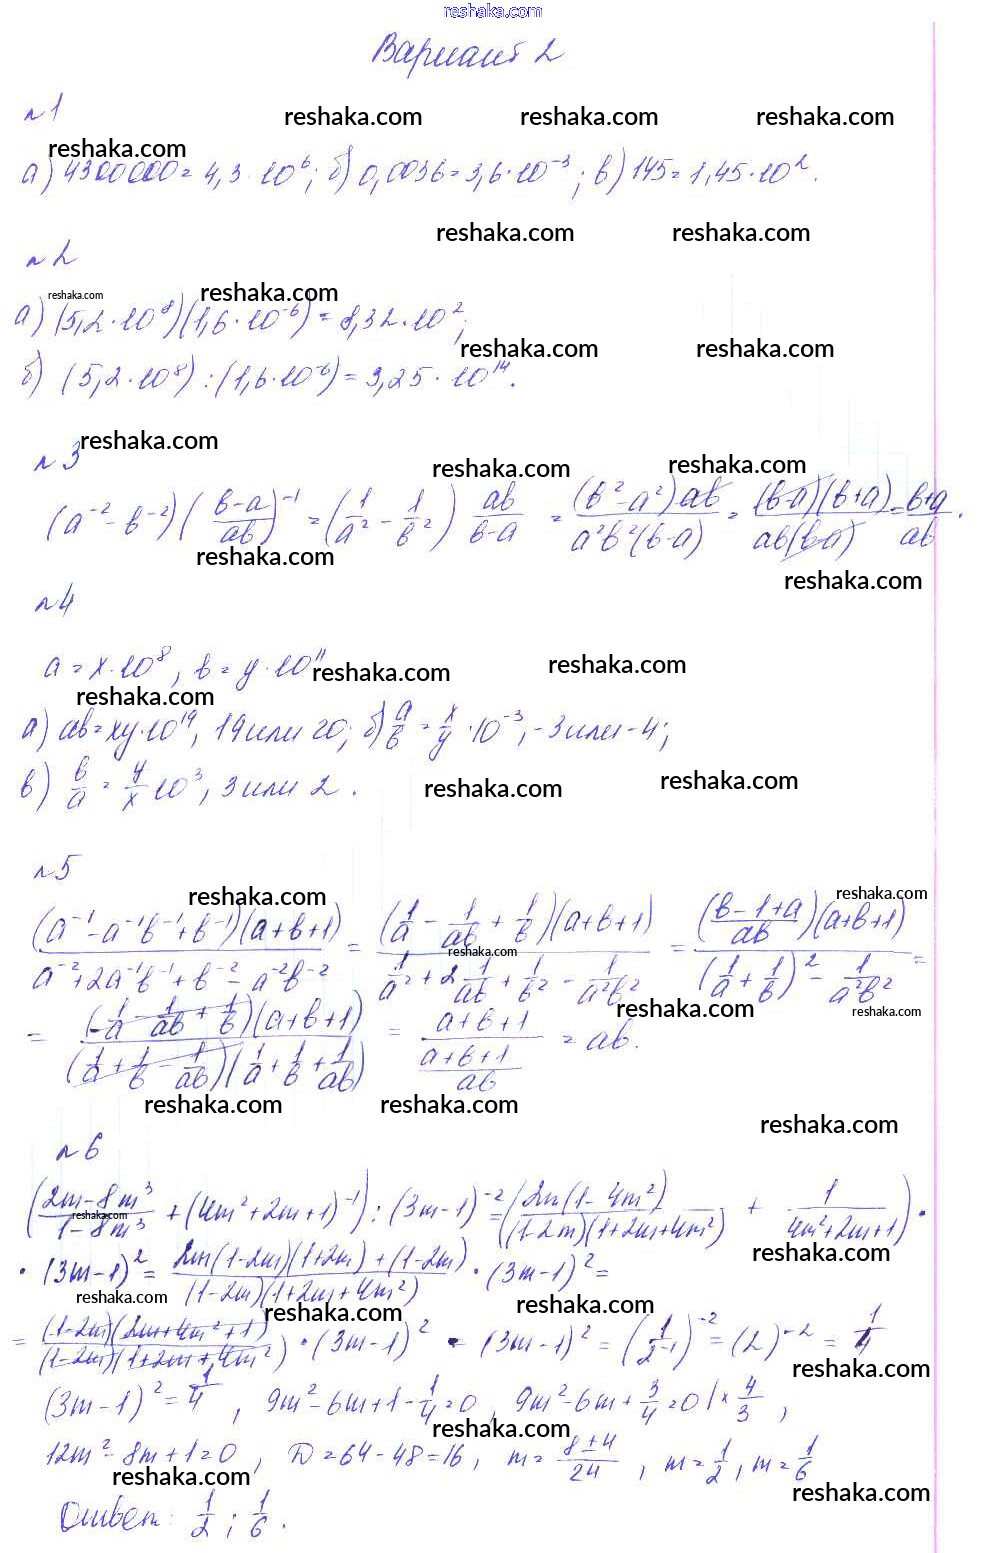 reshaka.com
Вариант 2
№1
reshaka.com reshaka.com reshaka.com
reshaka.com
а) 4300000 = 4,3 · 10^6; б) 0,0036 = 3,6 · 10^-3; в) 145 = 1,45 · 10^2.
reshaka.com reshaka.com
№2
reshaka.com reshaka.com
а) (5,2 · 10^8)(1,6 · 10^-6) = 8,32 · 10^2;
reshaka.com reshaka.com
б) (5,2 · 10^8) : (1,6 · 10^-6) = 3,25 · 10^14.
reshaka.com
№3
reshaka.com reshaka.com
(a^-2 - b^-2)((b-a)/(ab))^-1 = (1/a^2 - 1/b^2) ab/(b-a) = ((b^2 - a^2) · ab)/(a^2b^2(b-a)) = ((b-a)(b+a))/(ab(b-a)) = (b+a)/(ab).
reshaka.com
reshaka.com
№4
a = x · 10^8, b = y · 10^11
reshaka.com reshaka.com
reshaka.com
а) ab = xy · 10^19, 19 или 20; б) a/b = x/y · 10^-3, -3 или -4;
в) b/a = y/x · 10^3, 3 или 2.
reshaka.com reshaka.com
№5
reshaka.com reshaka.com
((a^-1 - a^-1b^-1 + b^-1)(a+b+1))/(a^-2 + 2a^-1b^-1 + b^-2 - a^-2b^-2) = ((1/a - 1/(ab) + 1/b)(a+b+1))/(1/a^2 + 2 1/(ab) + 1/b^2 - 1/(a^2b^2)) = (((b-1+a)/(ab))(a+b+1))/((1/a + 1/b)^2 - 1/(a^2b^2)) =
reshaka.com
reshaka.com reshaka.com
= ((1/a - 1/(ab) + 1/b)(a+b+1))/((1/a + 1/b - 1/(ab))(1/a + 1/b + 1/(ab))) = (a+b+1)/((a+b+1)/(ab)) = ab.
reshaka.com reshaka.com
reshaka.com
№6
((2m - 8m^3)/(1 - 8m^3) + (4m^2 + 2m + 1)^-1) : (3m-1)^-2 = ((2m(1 - 4m^2))/((1-2m)(1+2m+4m^2)) + 1/(4m^2+2m+1)) ·
reshaka.com
reshaka.com
· (3m-1)^2 = (2m(1-2m)(1+2m) + (1-2m))/((1-2m)(1+2m+4m^2)) · (3m-1)^2 =
reshaka.com reshaka.com reshaka.com
= ((1-2m)(2m+4m^2+1))/((1-2m)(1+2m+4m^2)) · (3m-1)^2 = (3m-1)^2 = (1/2^-1)^-2 = (2)^-2 = 1/4
reshaka.com
(3m-1)^2 = 1/4, 9m^2 - 6m + 1 - 1/4 = 0, 9m^2 - 6m + 3/4 = 0 | × 4/3,
reshaka.com
12m^2 - 8m + 1 = 0, D = 64 - 48 = 16, m = (8±4)/24, m = 1/2, m = 1/6
reshaka.com reshaka.com
Ответ: 1/2; 1/6.